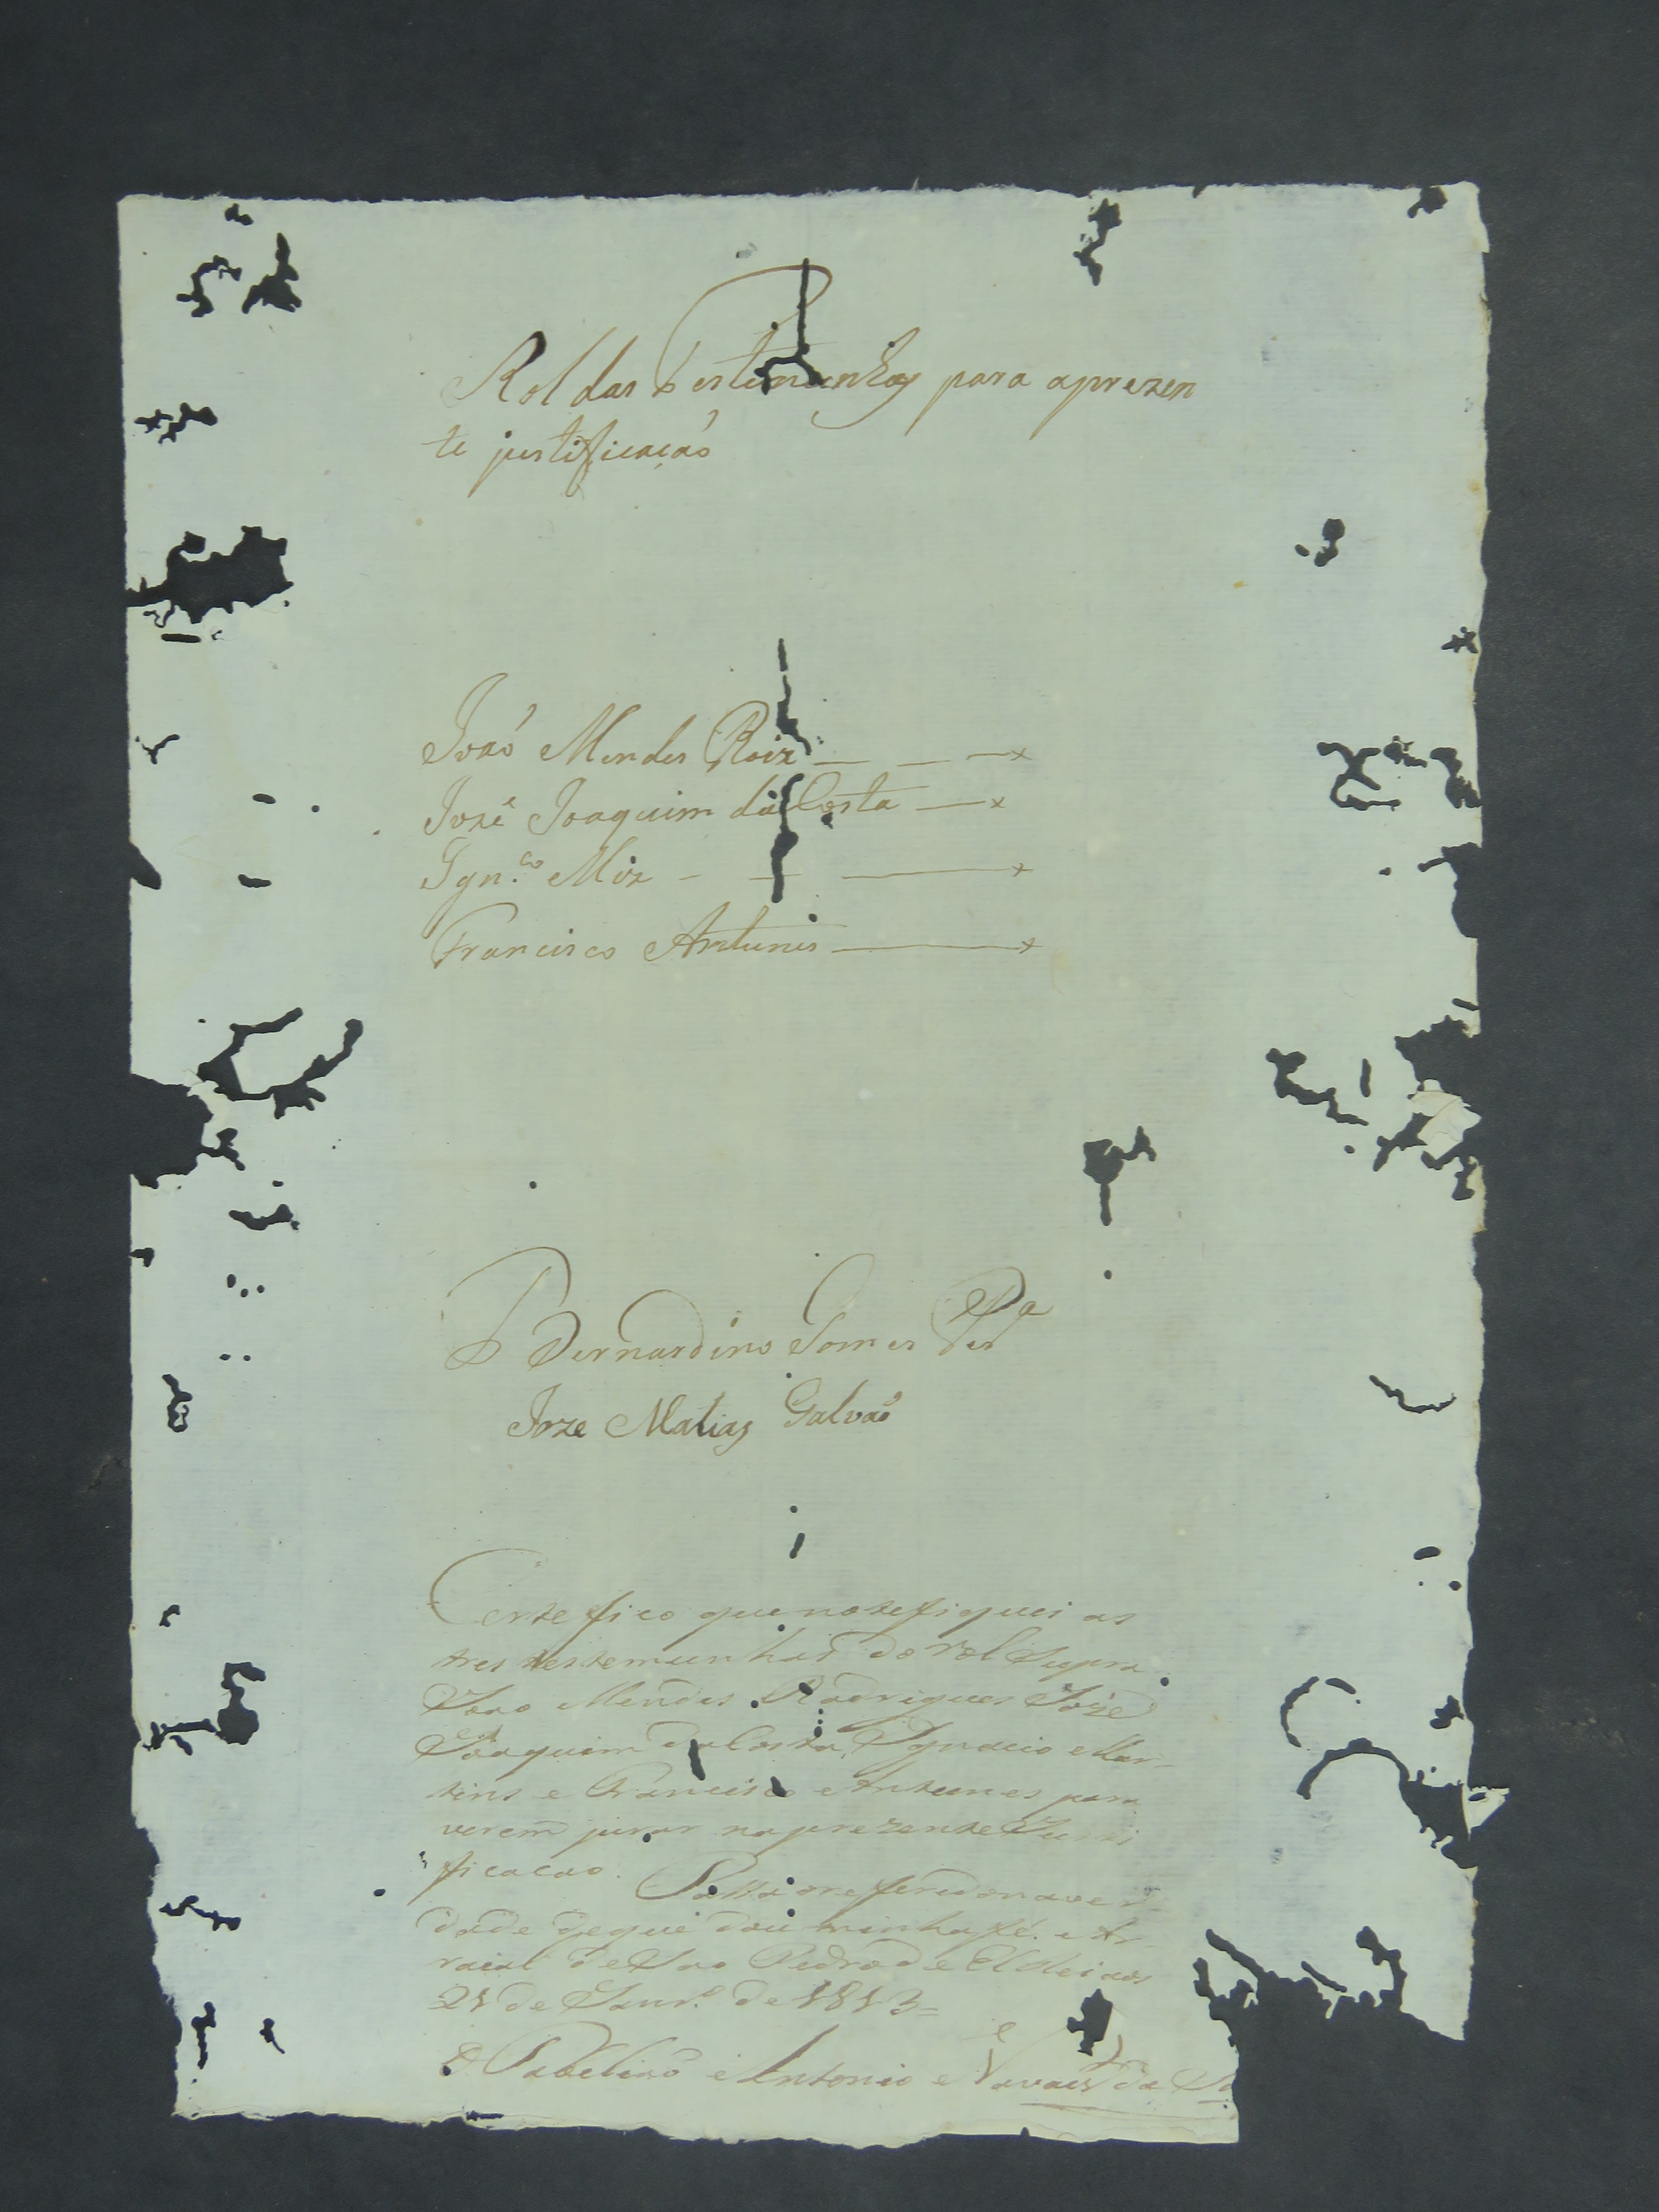 Rol das Testemunhas para aprezen
te justificaçaó
Joaó Mendes Roiz
Jozê Joaquim da Costa
Ign.co Miz
Francisco Antunes
Bernardino Gomes
Joze Matias Galvaó
Certefico que notefiquei as
tres testemunhas do rol Supra
Joao Mendes Rodrigues Joze
Joaquim da Costa, Ignacio Mar-
tins e Francisco Antunes para
verem jurar na prezente Justi
ficacao. Passa o referido na ver-
dade de que dou minha fé. Ar-
raial de Sao Pedro de El Rei aos
21 de Janr.o de 1813=
O Tabeliaó Antonio Navaes da